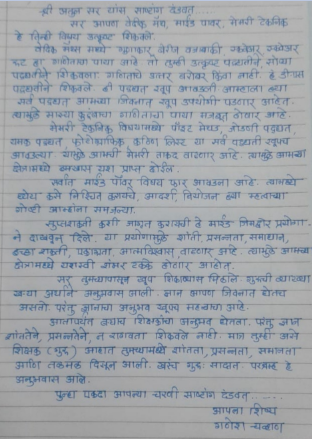 श्री अतुल सर यांस साष्टांग दंडवत....
सर आपण वेदीक मॅथ, माईंड पावर, मेमरी टेक्निक
हे तिन्ही विषय उत्कृष्ट शिकवले.
वेदिक मॅथ्स मध्ये गुणाकार बेरीज वजाबाकी स्क्वेअर
रूट हा गणिताचा पाया आहे तो तुम्ही उत्कृष्ट पध्दतीने सोप्या
पध्दतीने शिकवला. गणिताचे उत्तर बरोबर किंवा नाही. हे डीएस
पध्दतीने शिकवले. ही पध्दत खूप आवडली आम्हाला ह्या
सर्व पध्दती आमच्या जीवनात खूप उपयोगी पडणार आहेत.
त्यामुळे माझ्या मुलाचा गणिताचा पाया मजबूत होणार आहे.
मेमरी टेक्निक विषयामध्ये पॉवर मेथड, जोडणी पध्दत,
यमक पध्दत फोटोग्राफिक, लिस्ट या सर्व पध्दती खूपच
आवडल्या. यामुळे आमची मेमरी ताकद वाढणार आहे. त्यामुळे आमच्या
क्षेत्रामध्ये यश प्राप्त होईल.
सर्वात माईंड पॉवर विषय फार आवडला आहे. त्यामध्ये
ध्येय कसे निश्चित करायचे, आदर्श, नियोजन ह्या महत्वाच्या
गोष्टी आम्हांला समजल्या.
सुप्तशक्ती कशी जागृत करायची हे माईंड जिमद्वारे प्रयोगा-
ने दाखवून दिले. या प्रयोगामुळे शांती, प्रसन्नता, समाधान,
इच्छा शक्ती, एकाग्रता, आत्मविश्वास, वाढणार आहे. त्यामुळे आमच्या
क्षेत्रामध्ये यशस्वी शंभर टक्के होणार आहोत.
सर तुमच्यापासून खूप शिकायला मिळाले. गुरूची व्याख्या
खऱ्या अर्थाने अनुभवास आली. ज्ञान आपण जीवनात घेतच
असतो. परंतू ज्ञानाचा अनुभव खूपच महत्वाचा आहे.
आतापर्यंत बऱ्याच शिक्षकांचा अनुभव घेतला. परंतू ज्ञान
शांततेने, प्रसन्नतेने, न रागवता शिकवले नाही. मात्र तुम्ही असे
शिक्षक (गुरू) आहात तुमच्यामध्ये शांतता, प्रसन्नता, समानता
आणि तळमळ दिसून आली. खरंच गुरू: साक्षात. परब्रम्ह हे
अनुभवास आहे.
पुन्हा एकदा आपल्या चरणी साष्टांग दंडवत.....
आपला शिष्य
गणेश चव्हाण